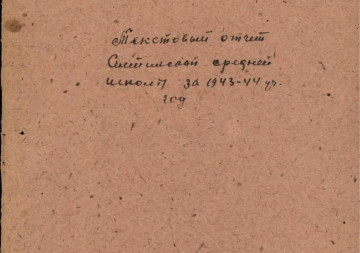 Текстовый отчет
средней
школы за 1943-44 уч.
год